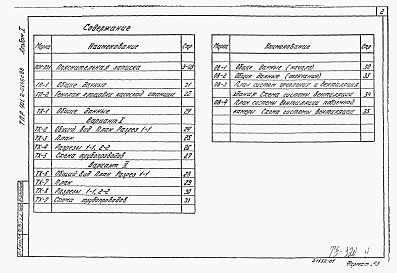 2
Содержание
Альбом I
Марка Наименование Стр
ПЗ-011 Пояснительная записка 3-18
ГП-1 Общие данные 21
ГП-2 Генплан площадки насосной станции 22
ТХ-1 Общие данные 23
Вариант I
ТХ-2 Общий вид План Разрез 1-1
ТХ-3 План 25
ТХ-4 Разрезы 1-1, 2-2 26
ТХ-5 Схема трубопроводов 27
Вариант II
ТХ-6 Общий вид План Разрез 1-1 28
ТХ-7 План 29
ТХ-8 Разрезы 1-1, 2-2 30
ТХ-9 Схема трубопроводов 31
Марка Наименование Стр
ОВ-1 Общие данные (начало) 32
ОВ-2 Общие данные (окончание) 33
ОВ-3 План систем отопления и вентиляции
здания Схема системы вентиляции 34
ОВ-4 План системы вентиляции подземной
камеры Схема системы вентиляции 35
Формат А3